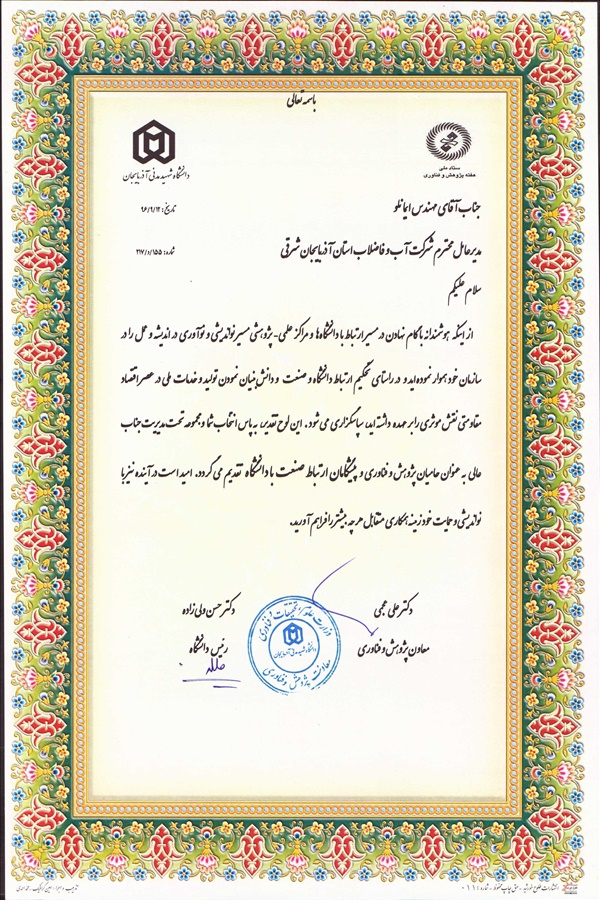 باسمه تعالی
ستاد ملی
هفته پژوهش و فناوری
دانشگاه شهید مدنی آذربایجان
جناب آقای مهندس ایمانلو
تاریخ: ۹۶/۹/۱۲
مدیرعامل محترم شرکت آب و فاضلاب استان آذربایجان شرقی
شماره: ۲۱۷/د/۱۵۵
سلام علیکم
از اینکه هوشمندانه با گام نهادن در مسیر ارتباط با دانشگاه‌ها و مراکز علمی-پژوهشی مسیر نواندیشی و نوآوری در اندیشه و عمل را در
سازمان خود هموار نموده‌اید و در راستای تحکیم ارتباط دانشگاه و صنعت و دانش بنیان نمودن تولید و خدمات ملی در عصر اقتصاد
مقاومتی نقش موثری را بر عهده داشته اید، سپاسگزاری می شود. این لوح تقدیر، به پاس انتخاب شما و مجموعه تحت مدیریت جناب
عالی به عنوان حامیان پژوهش و فناوری و پیشگامان ارتباط صنعت با دانشگاه تقدیم می گردد. امید است در آینده نیز با
نواندیشی و حمایت خود زمینه همکاری متقابل هرچه بیشتر را فراهم آورید.
دکتر علی عجمی
دکتر حسن ولی زاده
معاون پژوهش و فناوری
رئیس دانشگاه
وزارت علوم، تحقیقات و فناوری
دانشگاه شهید مدنی آذربایجان
معاونت پژوهش و فناوری